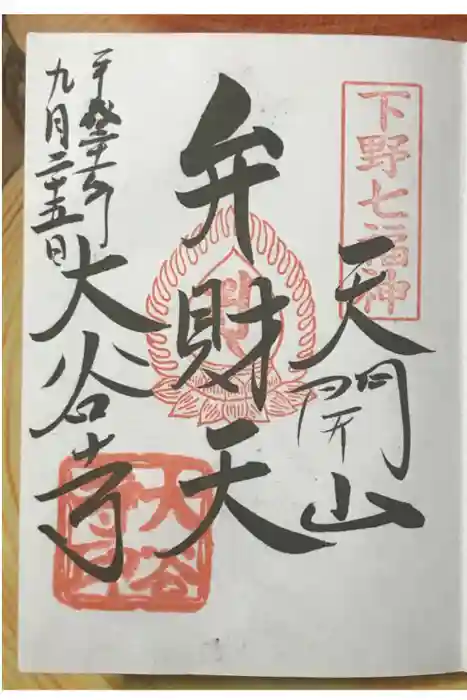 下野七福神
天開山
弁財天
大谷寺
平成二十六年
九月二十五日
大谷寺印